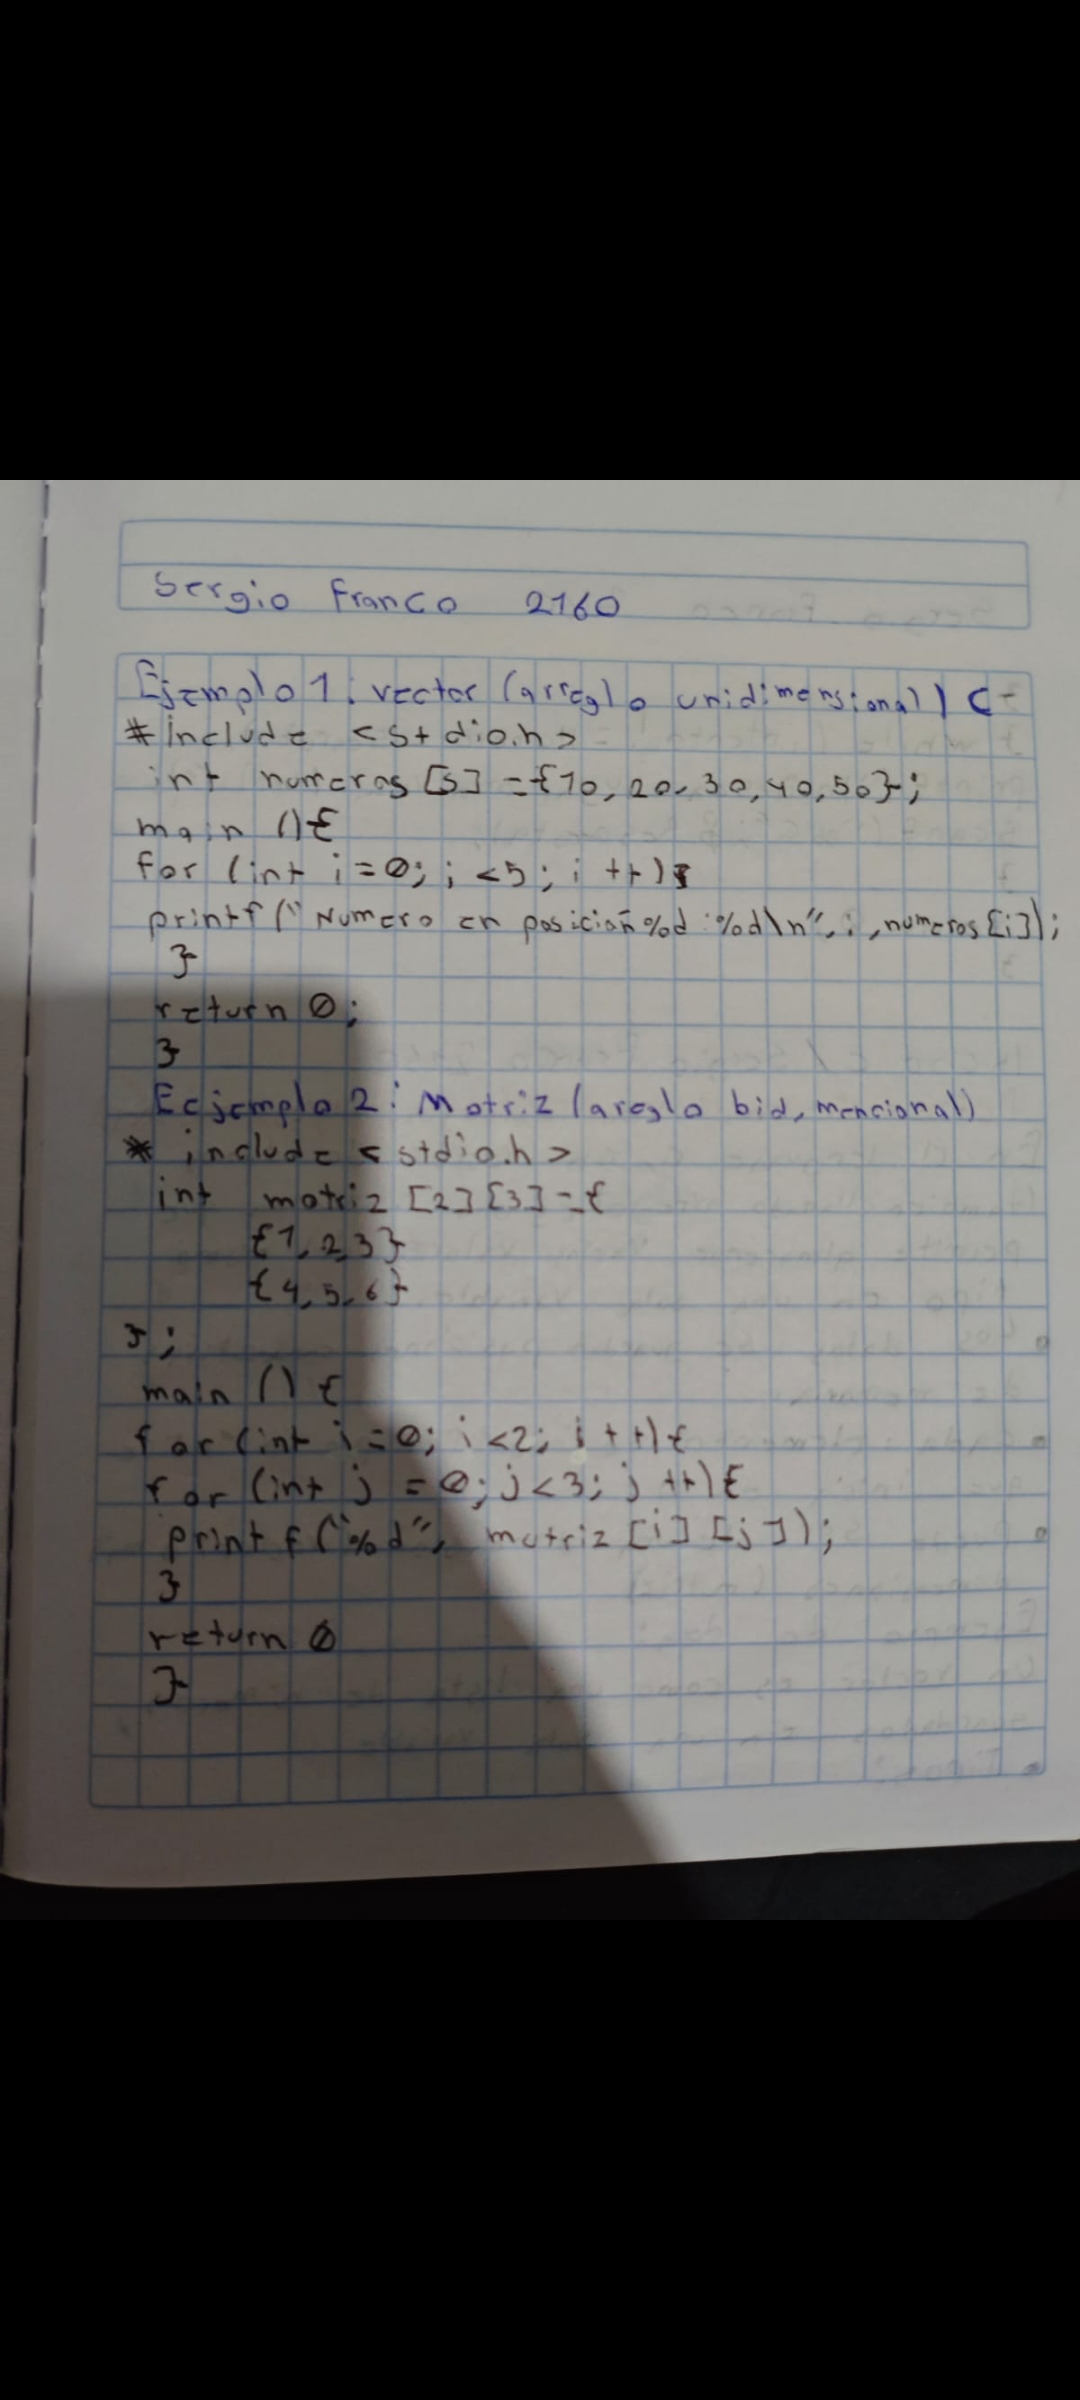 Sergio Franco 2160
Ejemplo 1: vector (arreglo unidimensional) C
#include <stdio.h>
int numeros [5] ={10, 20, 30, 40, 50};
main (){
for (int i=0; i <5; i ++){
printf (" Numero en posicion %d :%d\n", i, numeros [i]);
}
return 0;
}
Ecjemplo 2: Matriz (areglo bid, mencional)
* include <stdio.h>
int matriz [2] [3] ={
{1, 2, 3}
{4, 5, 6}
};
main () {
for (int i=0; i <2; i ++){
for (int j =0; j<3; j ++){
printf ("%d", matriz [i] [j]);
}
return 0
}